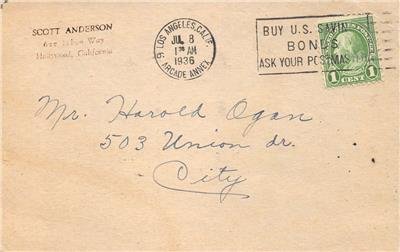 SCOTT ANDERSON
Way
Hollywood, California
LOS ANGELES, CALIF.
JUL 8
AM
1936
ARCADE ANNEX
BUY U.S. SAVIN
BONDS
ASK YOUR POSTMAS
1 CENT 1
Mr. Harold Ogan
503 Union dr.
City